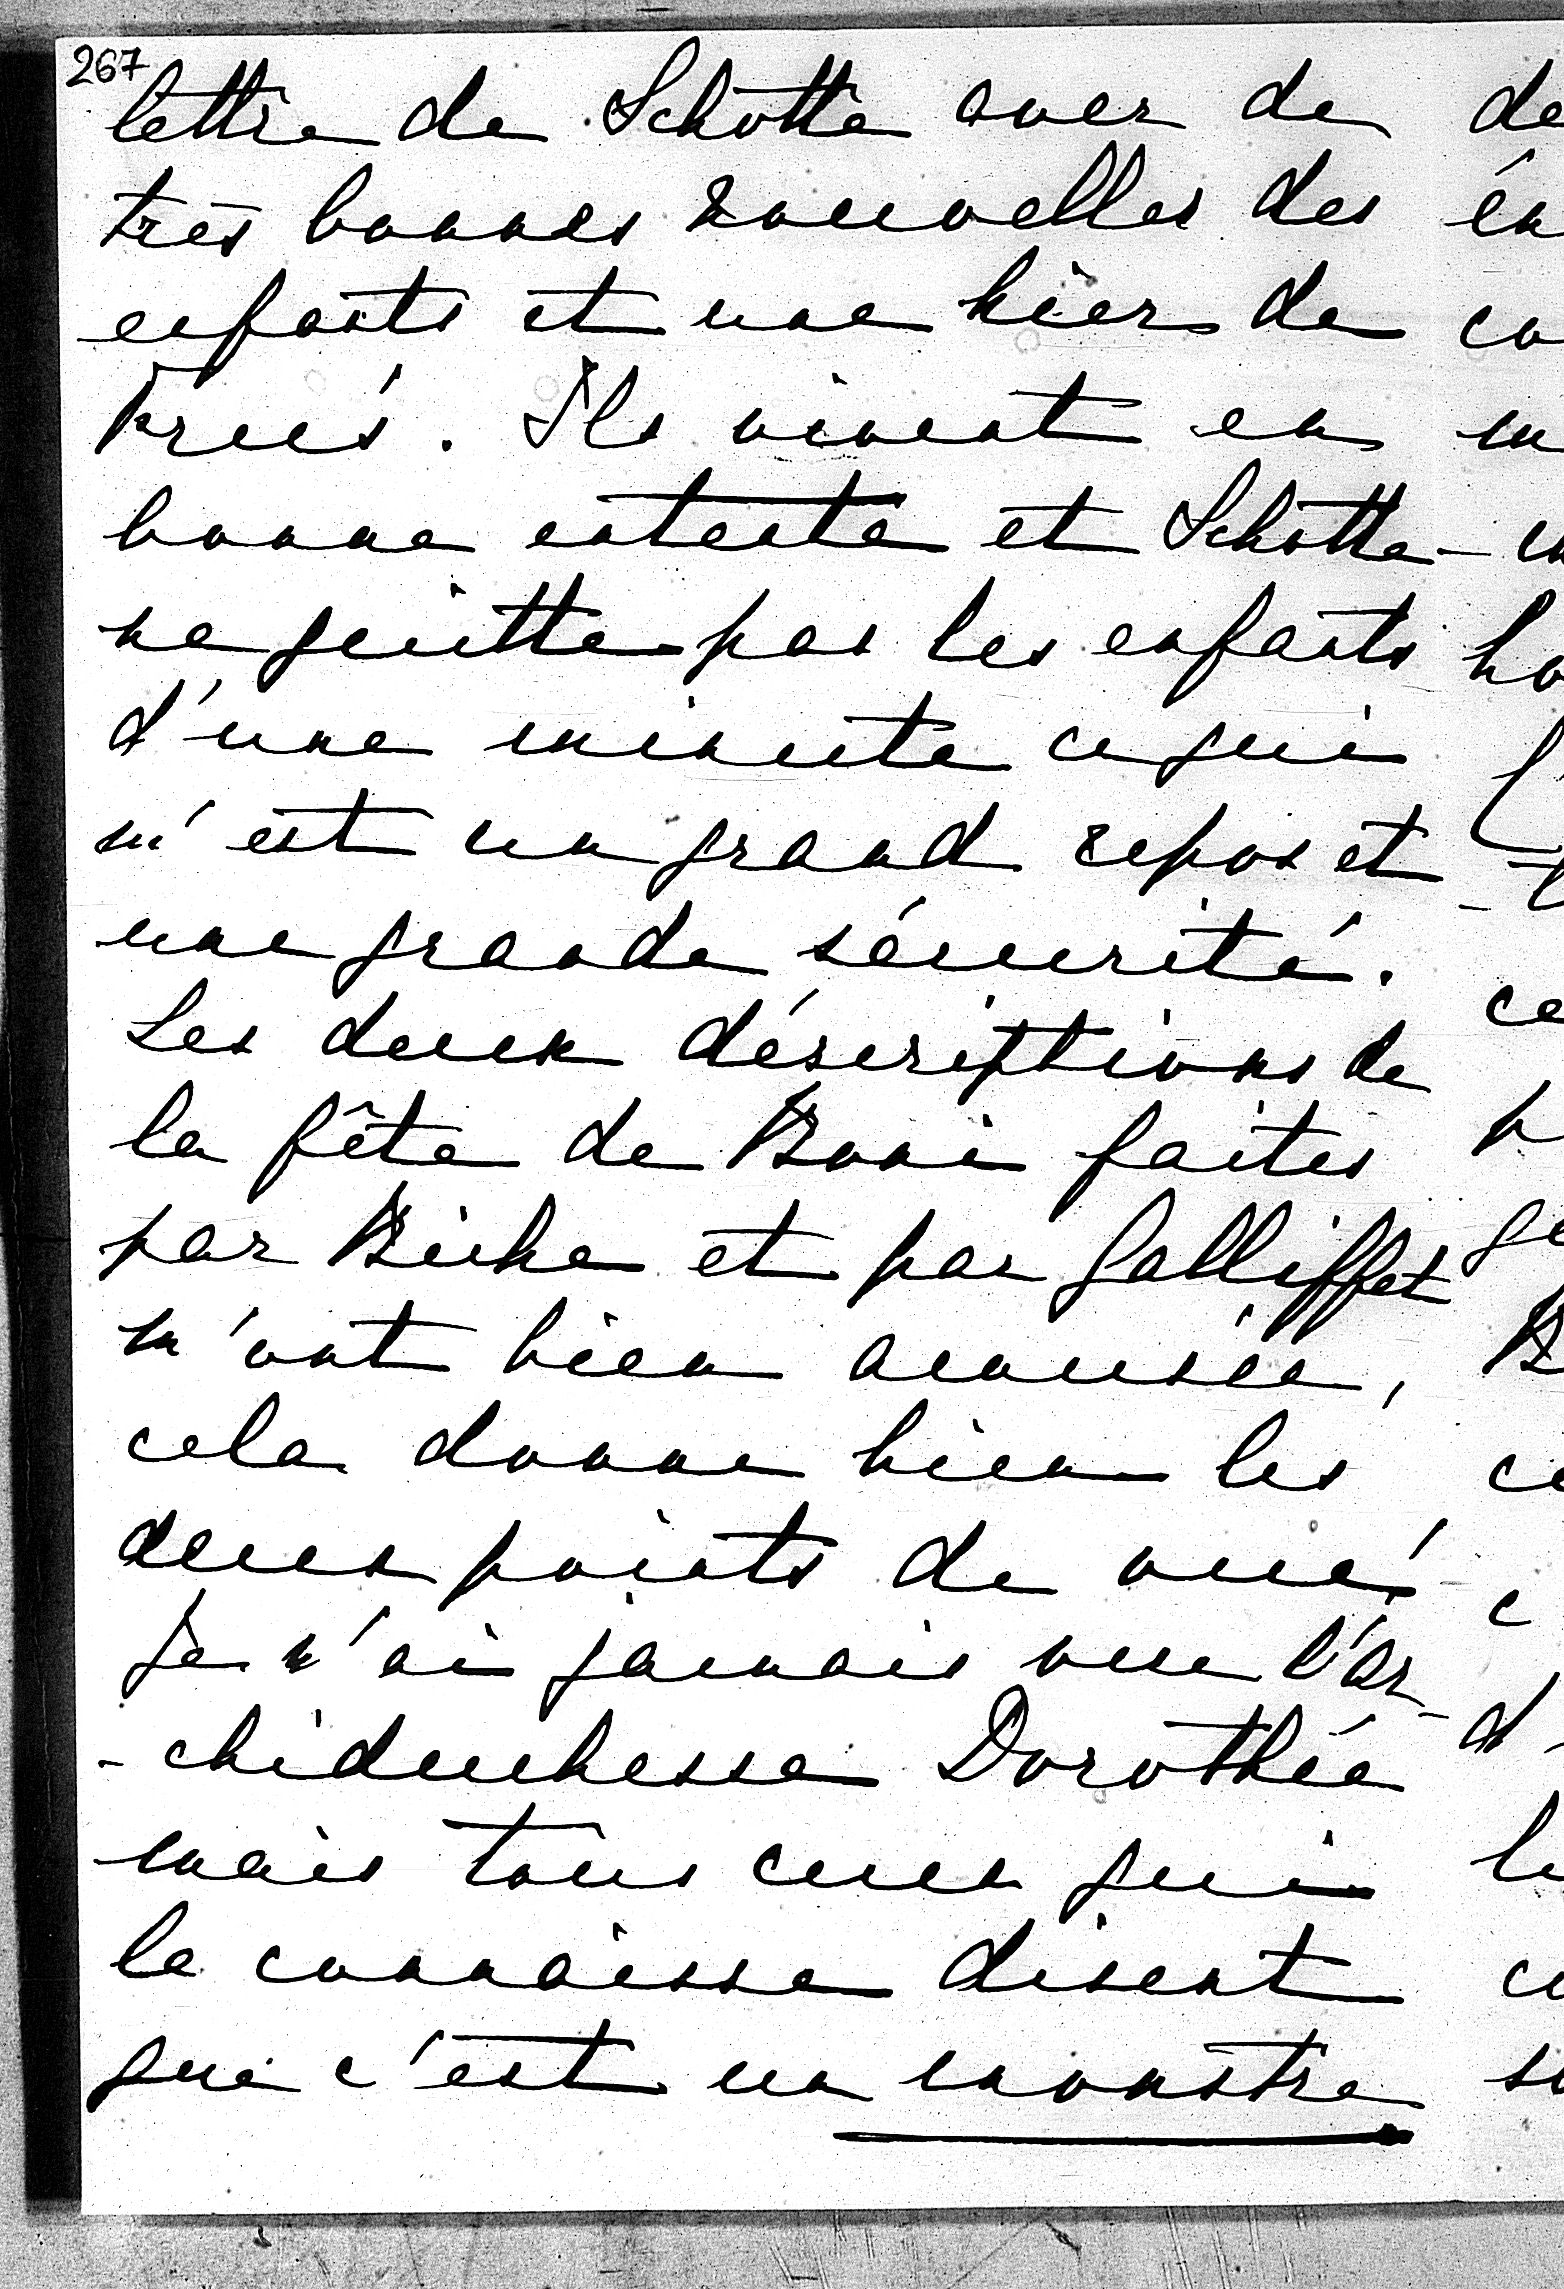 267
lettre de Schotte avec de
très bonnes nouvelles des
enfants et une hier de
Ils vivent en
bonne entente et Schotte
ne quitte pas les enfants
d'une minute ce qui
m'est un grand repos et
une grande sécurité.
Les deux déscriptions de
la fête de Boni faites
par Biche et par Galliffet
m'ont bien amusée,
cela donne bien les
deux points de vue
Je n'ai jamais vue l'ar
-chiduchesse Dorothée
mais tous ceux qui
la connaisse disent
que c'est un monstre